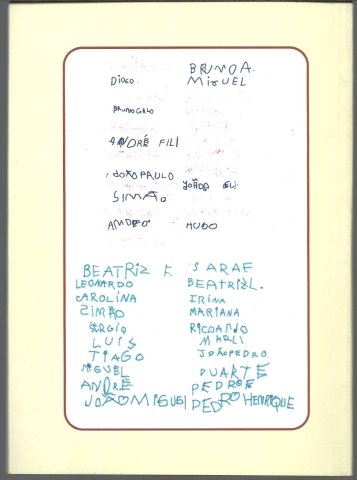 BRUNO A.
DIOGO MIGUEL
BRUNO GALO
ANDRÉ FILI
JOÃO PAULO
SIMÃO
HUGO
BEATRIZ F. SARA F
LEONARDO BEATRIZ L.
CAROLINA IRINA
SIMÃO MARIANA
SÉRGIO RICDARDO
LUIS MARLI
TIAGO JOÃO PEDRO
MIGUEL DUARTE
ANDRÉ PEDRO F
JOÃO MIGUEL PEDRO HENRIQUE